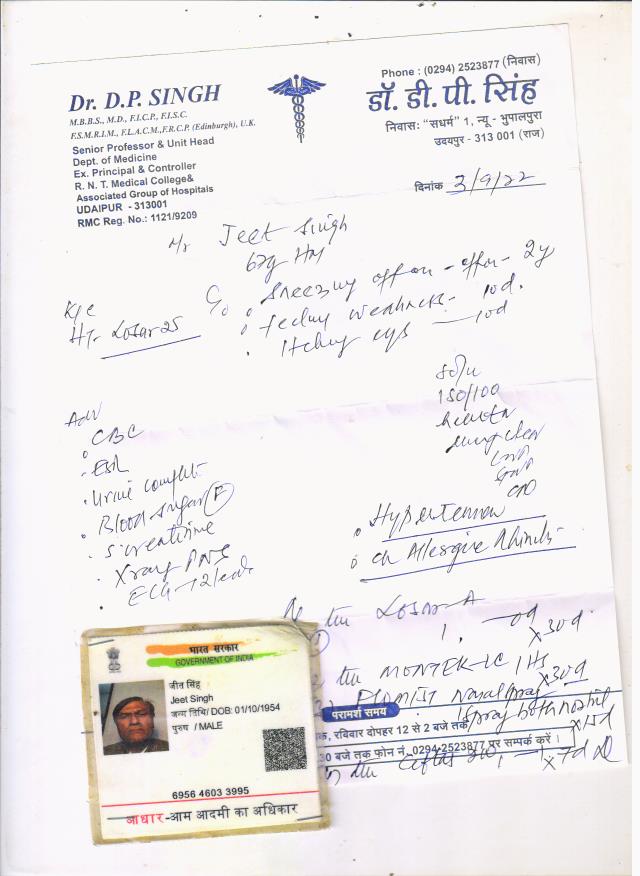 Dr. D.P. SINGH
M.B.B.S., M.D., F.I.C.P., F.I.S.C.
F.S.M.R.I.M., F.L.A.C.M.,F.R.C.P. (Edinburgh), U.K.
Senior Professor & Unit Head
Dept. of Medicine
Ex. Principal & Controller
R. N. T. Medical College&
Associated Group of Hospitals
UDAIPUR - 313001
RMC Reg. No.: 1121/9209
Phone : (0294) 2523877 (निवास)
डॉ. डी. पी. सिंह
निवास: "सधर्म" 1, न्यू - भुपालपुरा
उदयपुर - 313 001 (राज)
दिनांक 3/9/22
Jeet Singh
Sneezing off on - 2y
feeling weakness - 10d.
Itching eyes - 10d
HT- Losar 25
150/100
Adv
CBC
ESR
Urine complete
Blood sugar (F)
S creatinine
Xray PNS
ECG-12 lead
Hypertension
Ch Allergic Rhinitis
LOSAR-A
1, - od x 30d
MONTEK-LC 1 HS
x 30d
Nasal spray
1 spray both nostril
x 15d
x 7d
परामर्श समय
रविवार दोपहर 12 से 2 बजे तक
30 बजे तक फोन नं. 0294-2523877 पर सम्पर्क करें।
भारत सरकार
GOVERNMENT OF INDIA
जीत सिंह
Jeet Singh
जन्म तिथि/ DOB: 01/10/1954
पुरुष / MALE
6956 4603 3995
आधार -आम आदमी का अधिकार